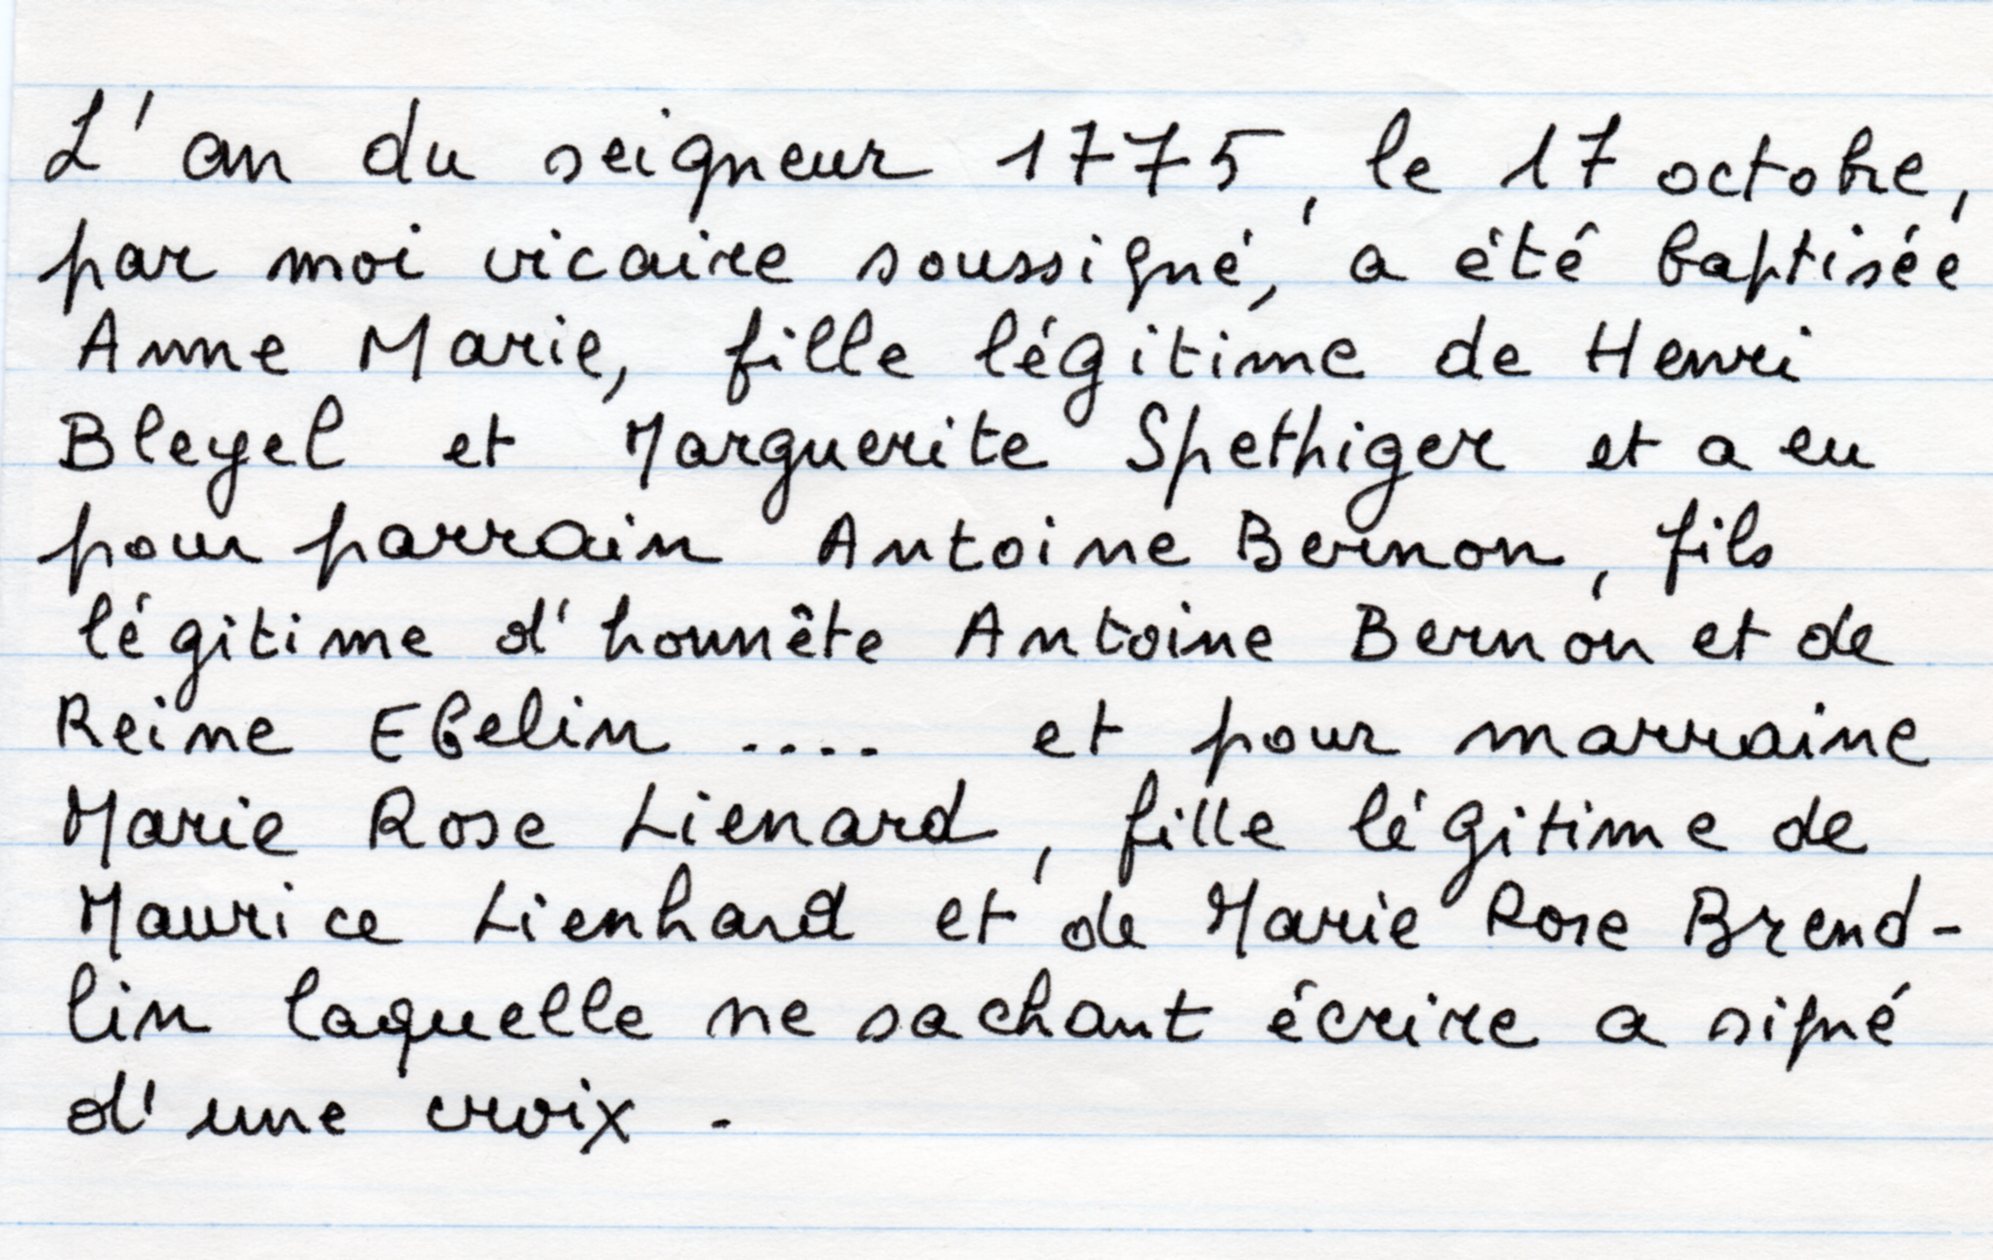 L'an du seigneur 1775, le 17 octobre,
par moi vicaire soussigné, a été baptisée
Anne Marie, fille légitime de Henri
Bleyel et Marguerite Spethiger et a eu
pour parrain Antoine Bernon, fils
légitime d'honnête Antoine Bernon et de
Reine Ebelin .... et pour marraine
Marie Rose Lienard, fille légitime de
Maurice Lienhard et de Marie Rose Brend-
lin laquelle ne sachant écrire a signé
d'une croix.